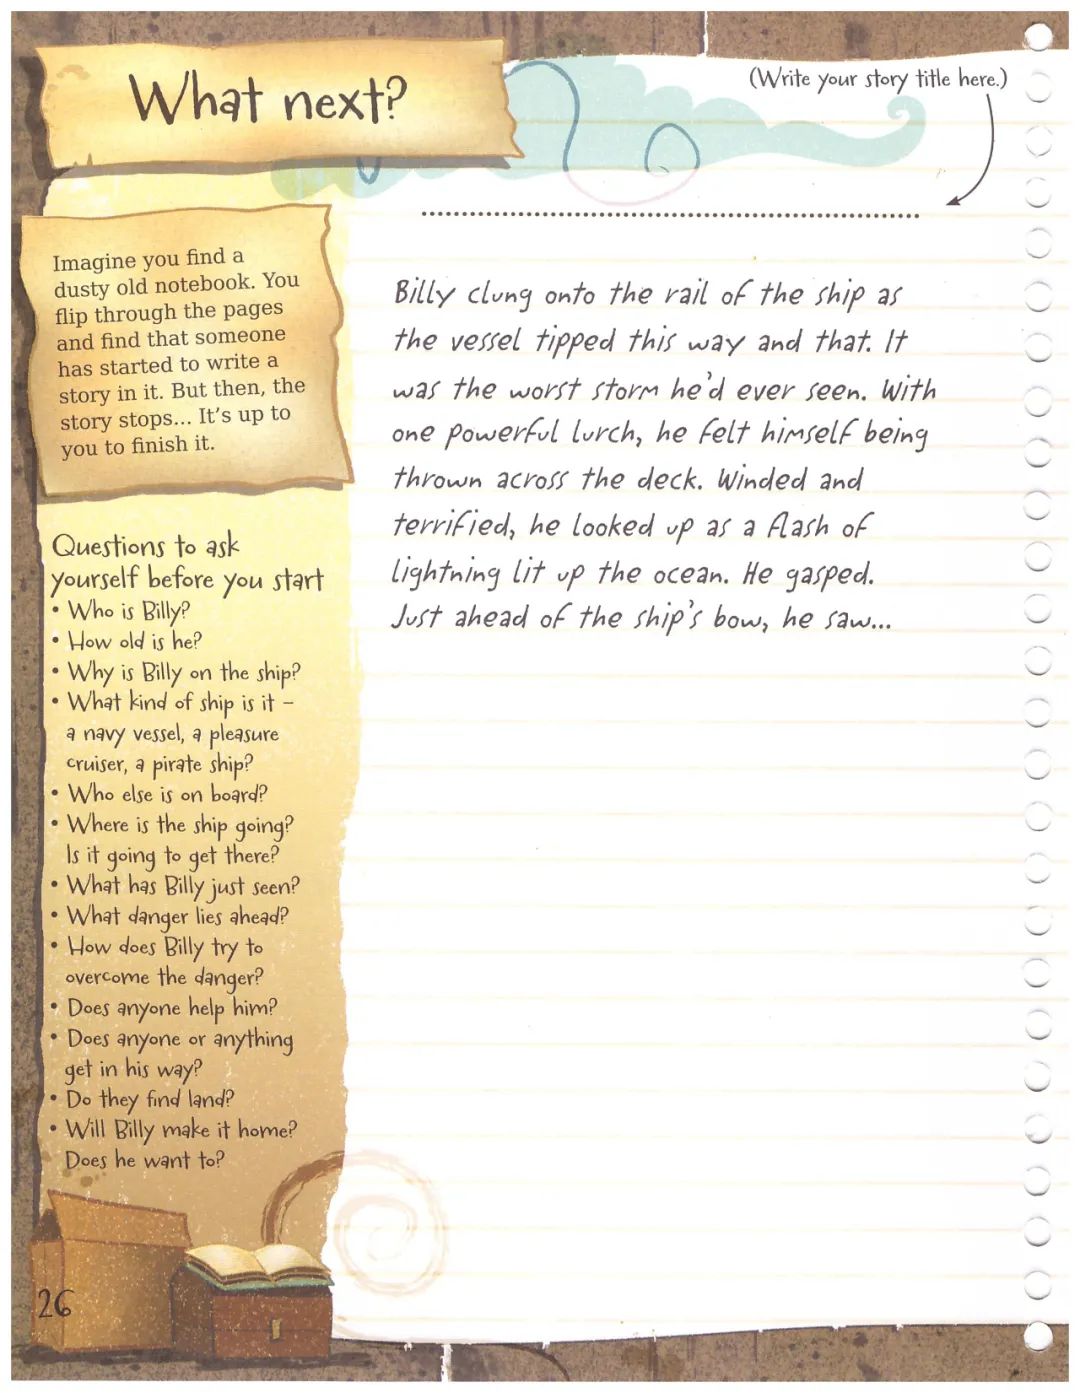 What next?
(Write your story title here.)
Imagine you find a
dusty old notebook. You
flip through the pages
and find that someone
has started to write a
story in it. But then, the
story stops... It's up to
you to finish it.
Billy clung onto the rail of the ship as
the vessel tipped this way and that. It
was the worst storm he'd ever seen. With
one powerful lurch, he felt himself being
thrown across the deck. Winded and
terrified, he looked up as a flash of
lightning lit up the ocean. He gasped.
Just ahead of the ship's bow, he saw...
Questions to ask
yourself before you start
• Who is Billy?
• How old is he?
• Why is Billy on the ship?
• What kind of ship is it –
a navy vessel, a pleasure
cruiser, a pirate ship?
• Who else is on board?
• Where is the ship going?
Is it going to get there?
• What has Billy just seen?
• What danger lies ahead?
• How does Billy try to
overcome the danger?
• Does anyone help him?
• Does anyone or anything
get in his way?
• Do they find land?
• Will Billy make it home?
Does he want to?
26